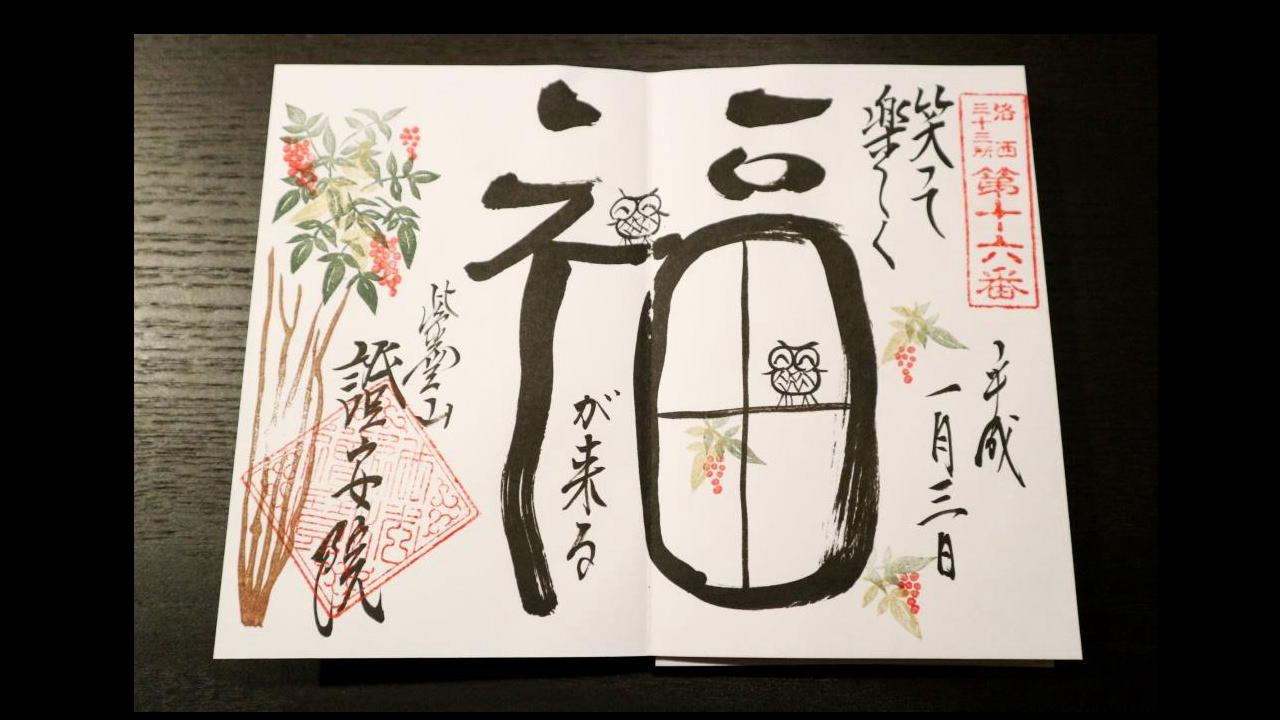 洛西
三十三所
第十六番
平成
一月三日
笑って
楽しく
福
が来る
紫雲山
證安院